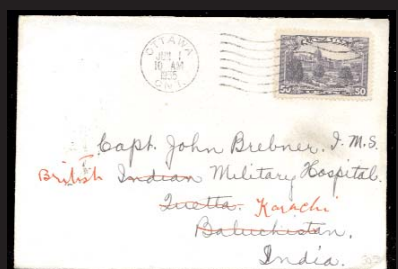 OTTAWA
JUN 1
10 AM
1935
ONT.
50 50
Capt. John Brebner. I.M.S.
British Indian Military Hospital.
Quetta. Karachi
Baluchistan.
India.